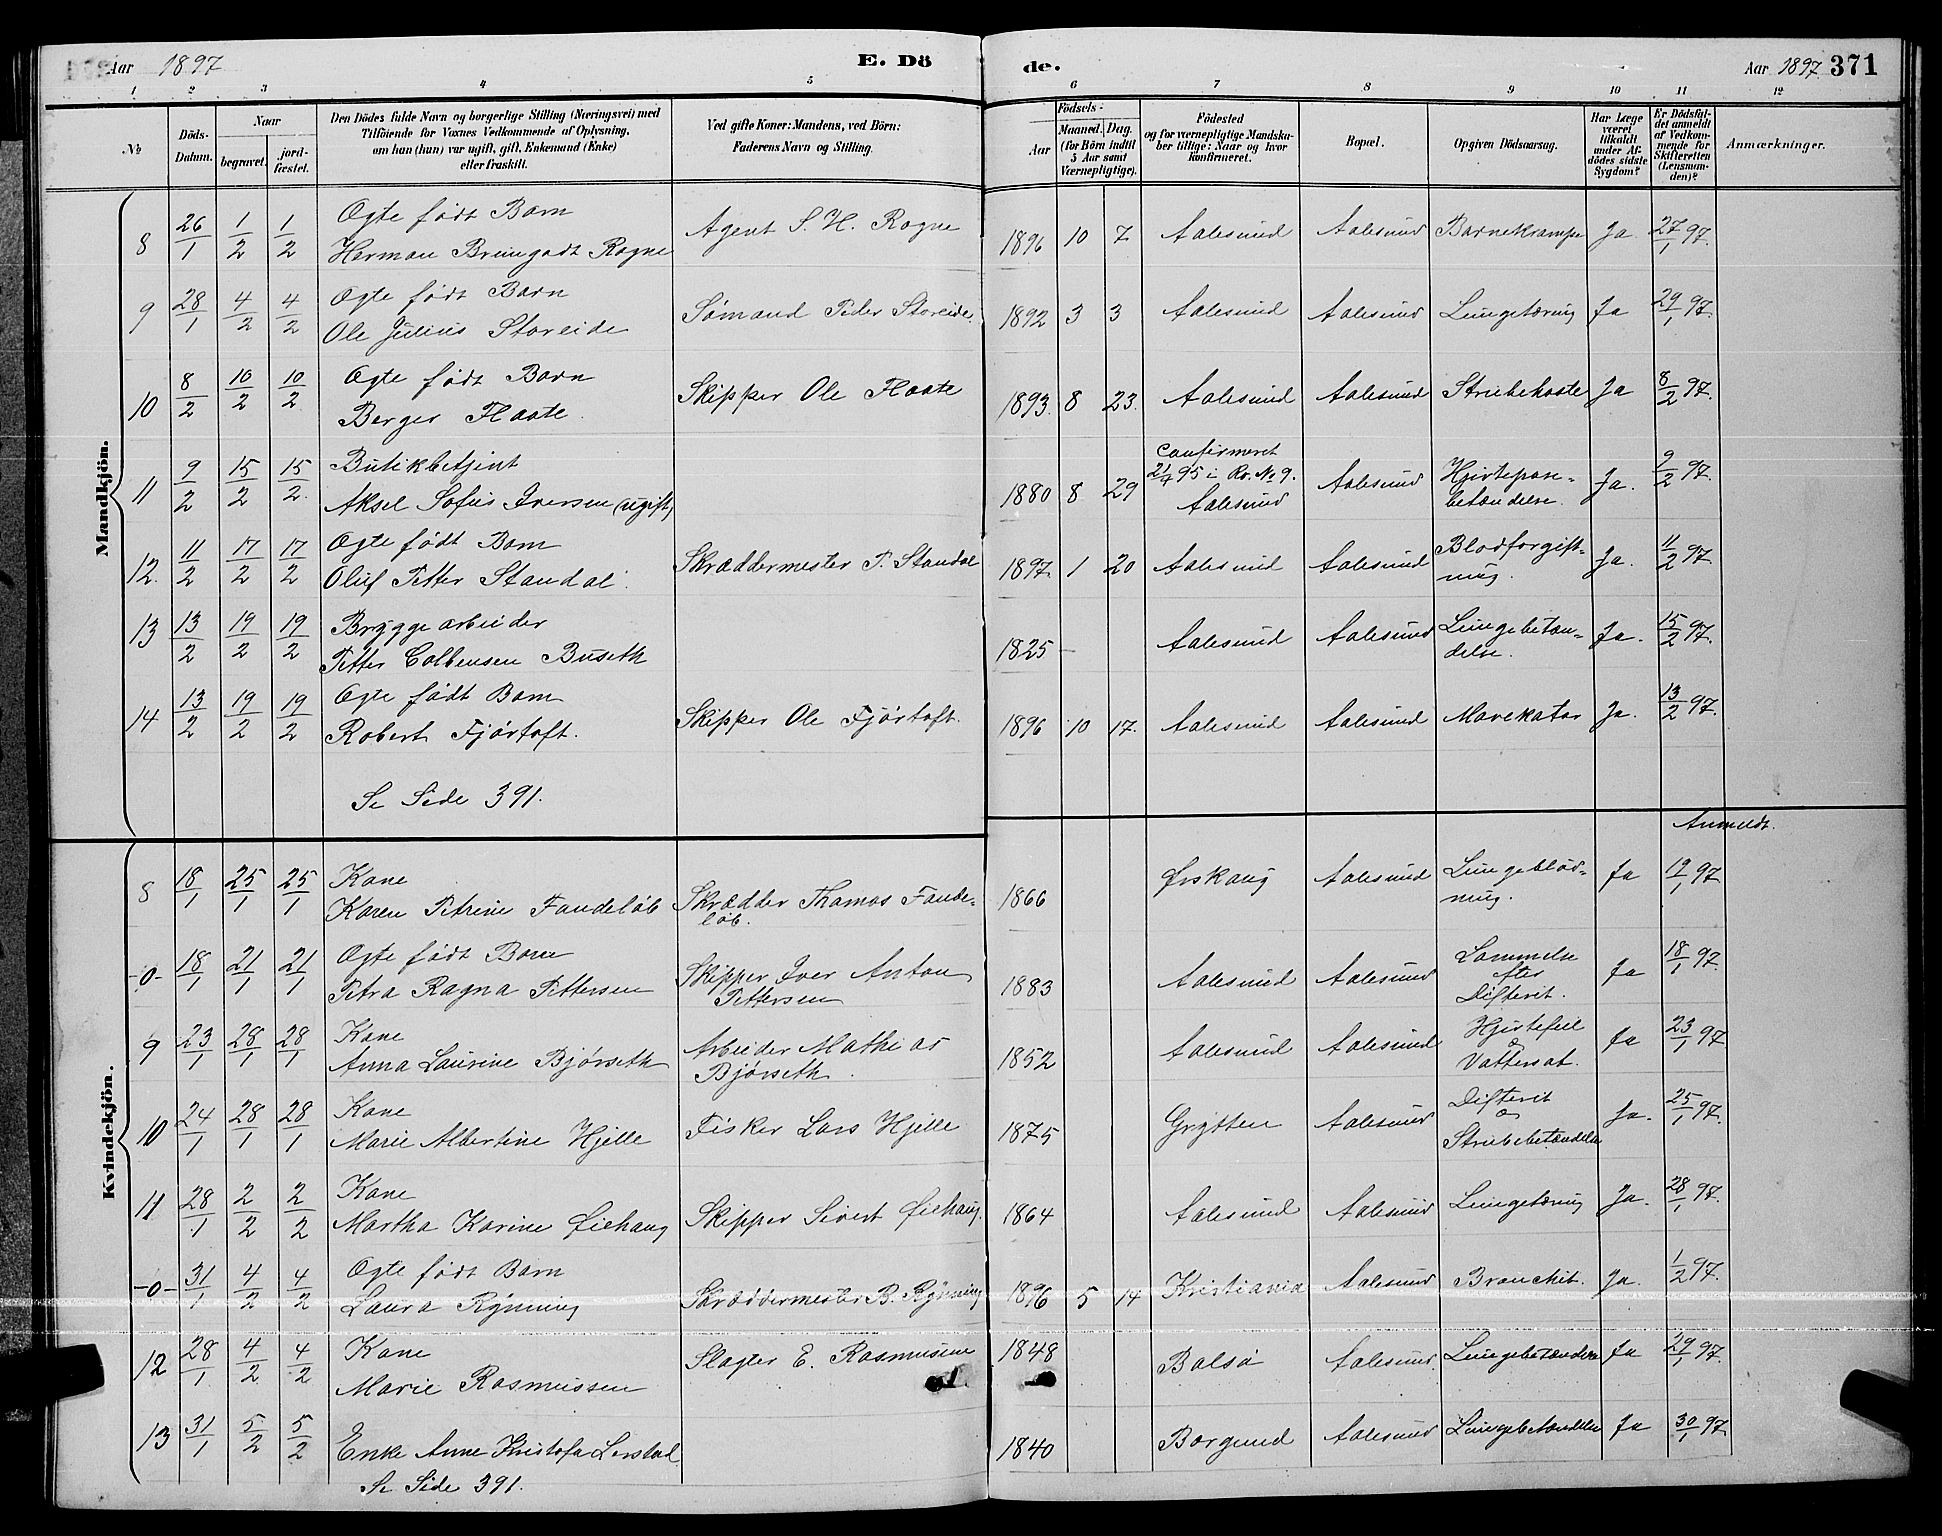 Aar 1897 E. Dö de. Aar 1897 371
1 2 3 4 5 6 7 8 9 10 11 12
№
Döds-Datum.
Naar
begravet.
jord-fæstet.
Den Dödes fulde Navn og borgerlige Stilling (Næringsvei) med
Tilföiende for Voxnes Vedkommende af Oplysning,
om han (hun) var ugift, gift, Enkemand (Enke)
eller fraskilt.
Ved gifte Koner: Mandens, ved Börn:
Faderens Navn og Stilling.
Födsels-
Aar
Maaned. Dag.
(for Börn indtil
5 Aar samt
Værnepligtige).
Födested
og for værnepligtige Mandska-
ber tillige: Naar og hvor
konfirmeret.
Bopæl.
Opgiven Dödsaarsag.
Har Læge
været
tilkaldt
under Af-
dödes sidste
Sygdom?
Er Dödsfal-
det anmeldt
af Vedkom-
mende for
Skifteretten
(Lensman-
den)?
Anmærkninger.
Mandkjön.
8 26/1 1/2 1/2 Ægte født Barn
Herman Breungodt Rogne Agent S. H. Rogne 1896 10 7 Aalesund Aalesund Barnekrampe Ja 27/1 97.
9 28/1 4/2 4/2 Ægte født Barn
Ole Julius Storeide Sømand Peder Storeide. 1892 3 3 Aalesund Aalesund Lungetæring Ja 29/1 97.
10 8/2 10/2 10/2 Ægte født Barn
Berger Flaate. Skipper Ole Flaate 1893. 8 23. Aalesund Aalesund Strubehoste Ja 8/2 97.
11 9/2 15/2 15/2. Butikbetjent
Aksel Sofus Iversen (ugift) 1880 8 29 Confirmeret
21/4 95 i Rv. № 9.
Aalesund Aalesund Hjertepose-
betændelse. Ja. 9/2 97.
12. 11/2 17/2 17/2 Ægte født Barn
Oluf Petter Standal. Skræddermester P. Standal 1897 1 20 Aalesund Aalesund Blodforgift-
ning. Ja. 11/2 97
13 13/2 19/2 19/2 Bryggearbeider
Petter Colbensen Buseth 1825 Aalesund Aalesund Lungebetæn-
delse. Ja. 15/2 97.
14 13/2 19/2 19/2 Ægte født Barn
Robert Fjørtoft. Skipper Ole Fjørtoft. 1896 10 17. Aalesund Aalesund Mavekatar Ja. 13/2 97.
Se Side 391.
Anmeldt.
Kvindekjön.
8 18/1 25/1 25/1 Kone
Karen Petrine Fandeløb Skrædder Thomas Fande-
løb. 1866 Ørskoug Aalesund Lungeblød-
ning. Ja 19/1 97
-0- 18/1 21/1 21/1 Ægte født Barn
Petra Ragna Pettersen Skipper Iver Anton
Pettersen 1883 Aalesund Aalesund Lammelse
efter
Difterit. Ja 18/1 97.
9 23/1 28/1 28/1 Kone
Anna Laurine Bjørseth Arbeider Mathias
Bjørseth. 1852 Aalesund Aalesund Hjertefeil
&
Vattersot. Ja 23/1 97
10 24/1 28/1 28/1 Kone
Marie Albertine Hjelle Fisker Lars Hjelle 1875 Grytten Aalesund Difterit
&
Strubebetændelse Ja. 25/1 97.
11 28/1 2/2 2/2 Kone
Martha Karine Øiehaug Skipper Sivert Øiehaug. 1864 Aalesund Aalesund Lungetæring Ja. 28/1 97.
-0- 31/1 4/2 4/2 Ægte født Barn
Laura Rýnning Skræddermester B. Rýnning 1896 5 14 Kristiania Aalesund Bronchit. Ja. 1/2 97.
12 28/1 4/2 4/2 Kone
Marie Rasmussen Slagter E. Rasmussen 1848 Bolsø Aalesund. Lungebetændelse Ja 29/1 97.
13 31/1 5/2 5/2 Enke Anne Kristofa Lerstad 1840 Borgund Aalesund Lungebetændelse Ja 30/1 97
Se Side 391.